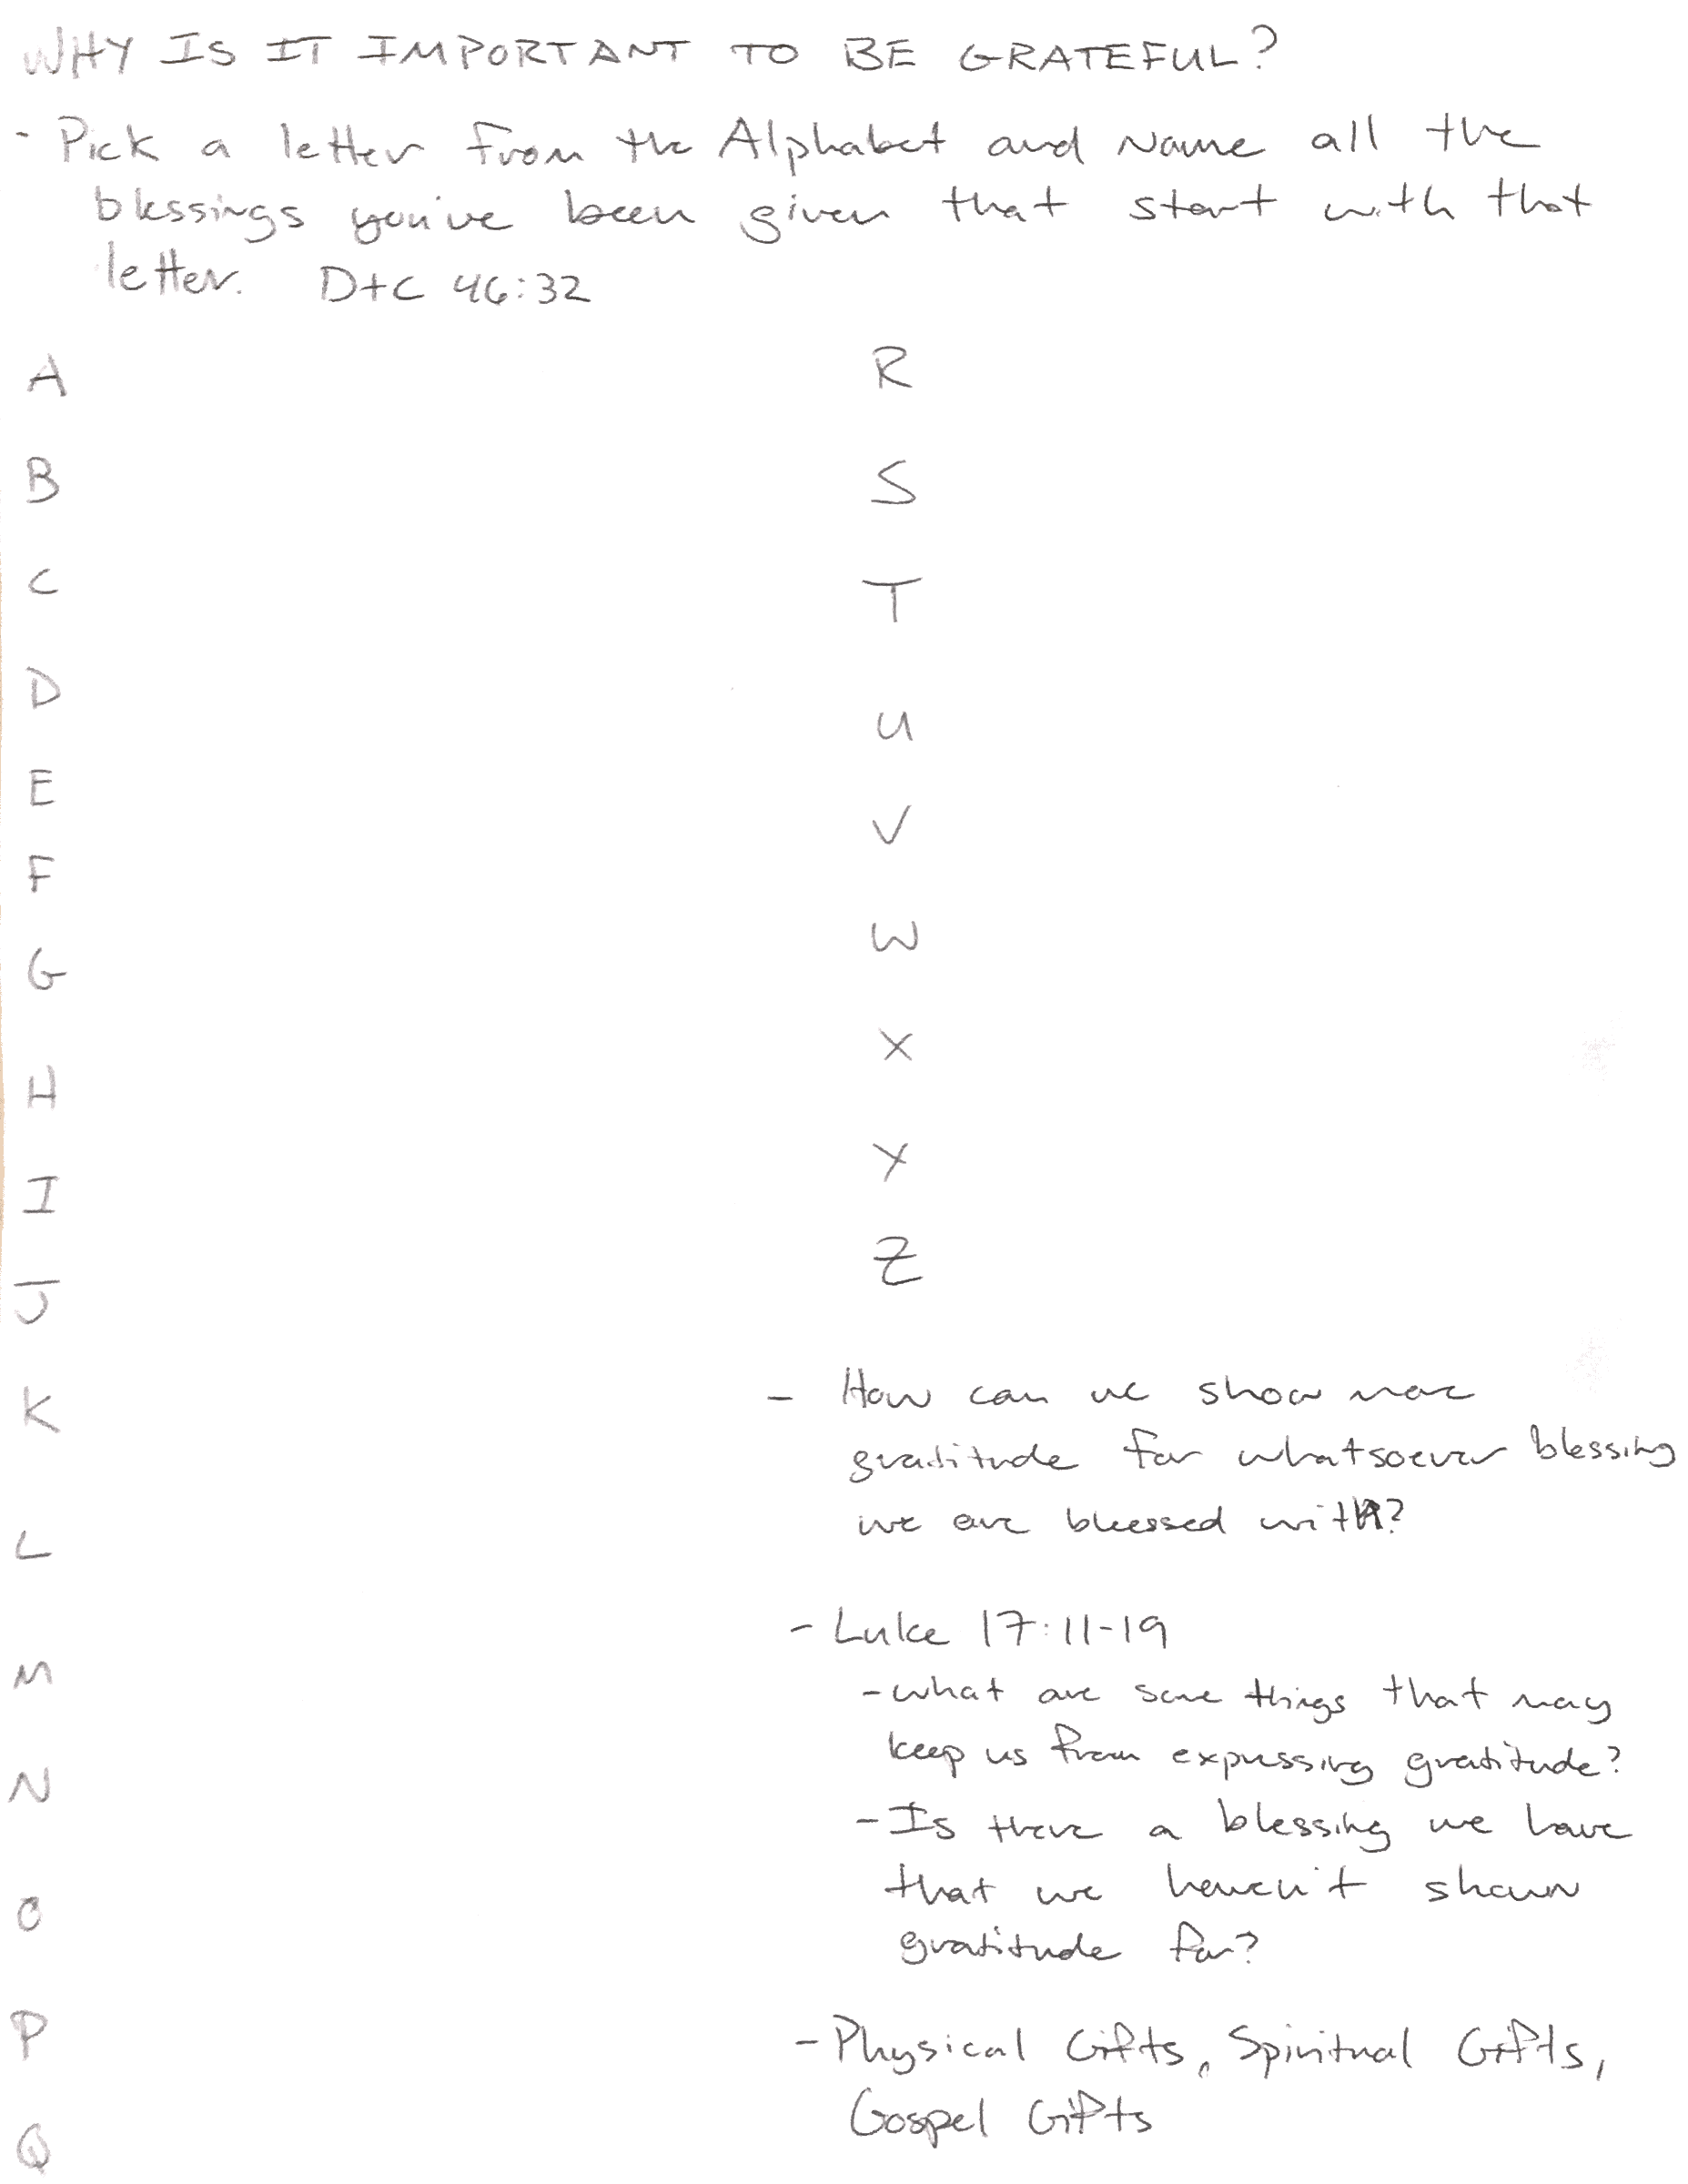 WHY IS IT IMPORTANT TO BE GRATEFUL?
- Pick a letter from the Alphabet and Name all the
blessings you've been given that start with that
letter. D+C 46:32
A
B
C
D
E
F
G
H
I
J
K
L
M
N
O
P
Q
R
S
T
U
V
W
X
Y
Z
- How can we show more
gratitude for whatsoever blessing
we are blessed with?
- Luke 17:11-19
- what are some things that may
keep us from expressing gratitude?
- Is there a blessing we have
that we haven't shown
gratitude for?
- Physical Gifts, Spiritual Gifts,
Gospel Gifts